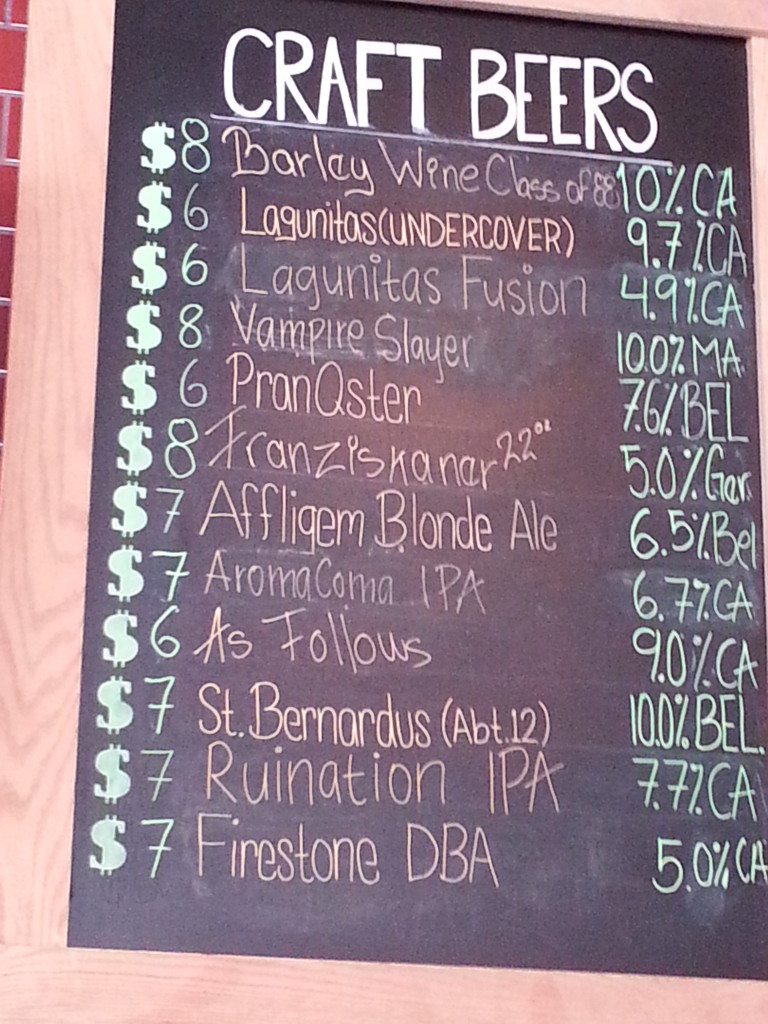 CRAFT BEERS
$8 Barley Wine Class of 88 10% CA
$6 Lagunitas (UNDERCOVER) 9.7% CA
$6 Lagunitas Fusion 4.9% CA
$8 Vampire Slayer 10.0% MA
$6 PranQster 7.6% BEL
$8 Franziskanar 22oz 5.0% Ger
$7 Affligem Blonde Ale 6.5% Bel
$7 AromaComa IPA 6.7% CA
$6 As Follows 9.0% CA
$7 St. Bernardus (Abt.12) 10.0% BEL.
$7 Ruination IPA 7.7% CA
$7 Firestone DBA 5.0% CA